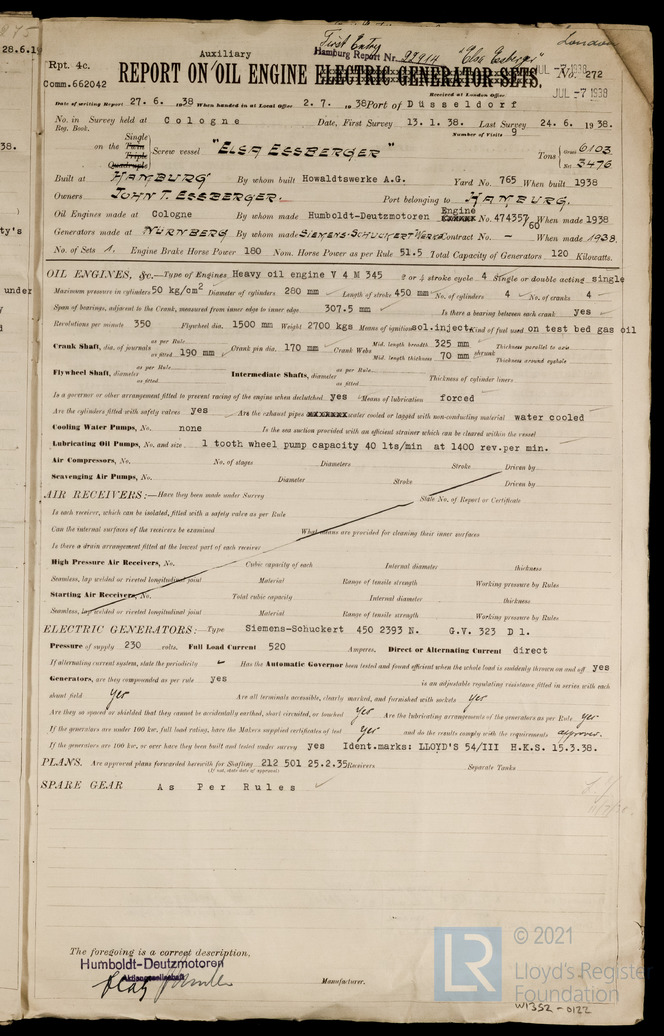 28.6.19
First Entry
London
Auxiliary
Hamburg Report Nr. 22914 "Elsa Essberger"
Rpt. 4c.
Comm.662042
REPORT ON OIL ENGINE ELECTRIC GENERATOR SETS. No. 272
JUL -7 1938
Received at London Office JUL -7 1938
Date of writing Report 27. 6. 1938 When handed in at Local Office 2. 7. 1938 Port of Düsseldorf
No. in Survey held at Cologne Date, First Survey 13. 1. 38. Last Survey 24. 6. 1938.
Reg. Book. Number of Visits 9
on the Single Twin Triple Quadruple Screw vessel "ELSA ESSBERGER" Tons Gross 6103 Net 3476
Built at HAMBURG By whom built Howaldtswerke A.G. Yard No. 765 When built 1938
Owners JOHN T. ESSBERGER. Port belonging to HAMBURG.
Oil Engines made at Cologne By whom made Humboldt-Deutzmotoren Engine No. 474357/60 When made 1938
Generators made at NÜRNBERG By whom made SIEMENS-SCHUCKERT WERKE Contract No. - When made 1938.
No. of Sets 1. Engine Brake Horse Power 180 Nom. Horse Power as per Rule 51.5 Total Capacity of Generators 120 Kilowatts.
OIL ENGINES, &c.—Type of Engines Heavy oil engine V 4 M 345 2 or 4 stroke cycle 4 Single or double acting single
Maximum pressure in cylinders 50 kg/cm2 Diameter of cylinders 280 mm Length of stroke 450 mm No. of cylinders 4 No. of cranks 4
Span of bearings, adjacent to the Crank, measured from inner edge to inner edge 307.5 mm Is there a bearing between each crank yes
Revolutions per minute 350 Flywheel dia. 1500 mm Weight 2700 kgs Means of ignition sol.inject. Kind of fuel used on test bed gas oil
Crank Shaft, dia. of journals as per Rule as fitted 190 mm Crank pin dia. 170 mm Crank Webs Mid. length breadth 325 mm Mid. length thickness 70 mm shrunk Thickness parallel to axis Thickness around eyehole
Flywheel Shaft, diameter as per Rule as fitted Intermediate Shafts, diameter as per Rule as fitted Thickness of cylinder liners
Is a governor or other arrangement fitted to prevent racing of the engine when declutched yes Means of lubrication forced
Are the cylinders fitted with safety valves yes Are the exhaust pipes xxxxxxx water cooled or lagged with non-conducting material water cooled
Cooling Water Pumps, No. none Is the sea suction provided with an efficient strainer which can be cleared within the vessel
Lubricating Oil Pumps, No. and size 1 tooth wheel pump capacity 40 lts/min at 1400 rev.per min.
Air Compressors, No. No. of stages Diameters Stroke Driven by
Scavenging Air Pumps, No. Diameter Stroke Driven by
AIR RECEIVERS:—Have they been made under Survey State No. of Report or Certificate
Is each receiver, which can be isolated, fitted with a safety valve as per Rule
Can the internal surfaces of the receivers be examined What means are provided for cleaning their inner surfaces
Is there a drain arrangement fitted at the lowest part of each receiver
High Pressure Air Receivers, No. Cubic capacity of each Internal diameter thickness
Seamless, lap welded or riveted longitudinal joint Material Range of tensile strength Working pressure by Rules
Starting Air Receivers, No. Total cubic capacity Internal diameter thickness
Seamless, lap welded or riveted longitudinal joint Material Range of tensile strength Working pressure by Rules
ELECTRIC GENERATORS:—Type Siemens-Schuckert 450 2393 N. G.V. 323 D 1.
Pressure of supply 230 volts. Full Load Current 520 Amperes. Direct or Alternating Current direct
If alternating current system, state the periodicity Has the Automatic Governor been tested and found efficient when the whole load is suddenly thrown on and off yes
Generators, are they compounded as per rule yes is an adjustable regulating resistance fitted in series with each
shunt field yes Are all terminals accessible, clearly marked, and furnished with sockets yes
Are they so spaced or shielded that they cannot be accidentally earthed, short circuited, or touched yes Are the lubricating arrangements of the generators as per Rule yes
If the generators are under 100 kw. full load rating, have the Makers supplied certificates of test yes and do the results comply with the requirements approv.
If the generators are 100 kw. or over have they been built and tested under survey yes Ident.marks: LLOYD'S 54/III H.K.S. 15.3.38.
PLANS. Are approved plans forwarded herewith for Shafting 212 501 25.2.35 Receivers Separate Tanks
(If not, state date of approval)
SPARE GEAR As Per Rules
The foregoing is a correct description,
Humboldt-Deutzmotoren
Aktiengesellschaft
Manufacturer.
© 2021
Lloyd's Register
Foundation
LR
W1352-0122